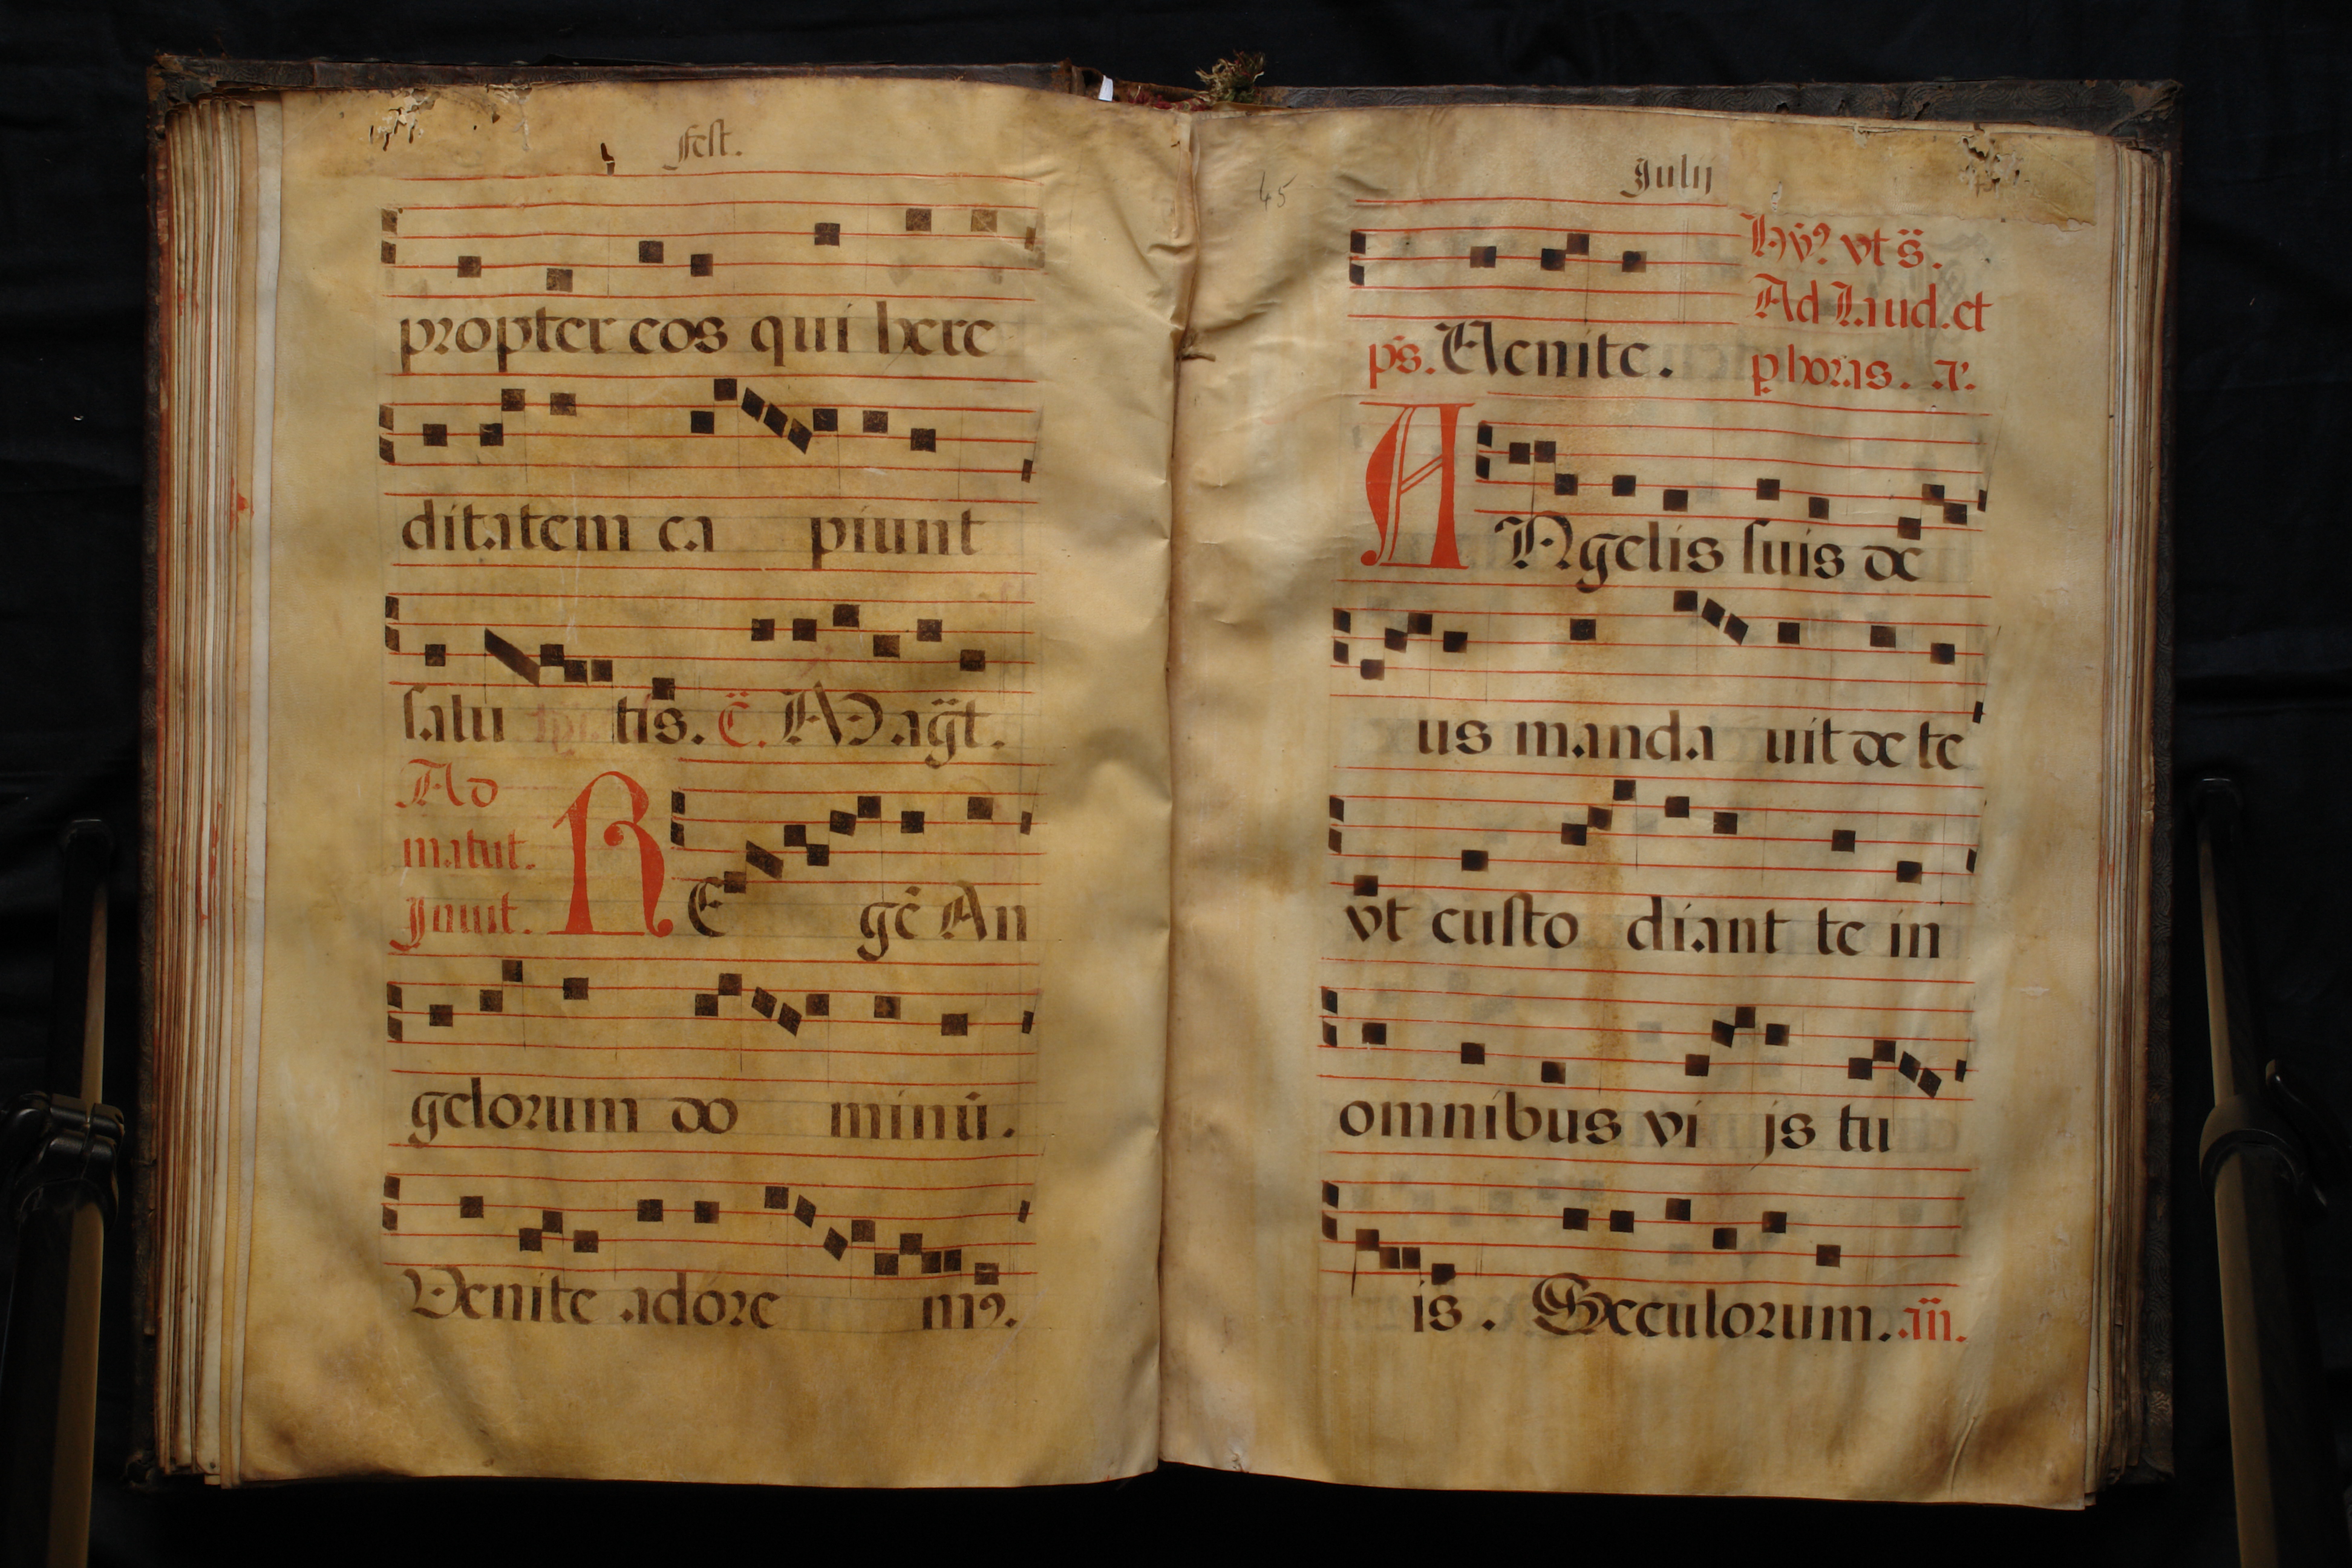 Fest.
propter eos qui here
ditatem ca piunt
salu tis. C̈. Mag̈t.
Ad
matut.
Jnuit.
RE gē An
gelorum do minū.
Venite adóre mꝰ.
45
Julij
Hỹꝰ vt s̈.
Ad Laud. et
ps. Venite. p horas. a.
ANgelis suis de
us manda uit de te
vt custo diant te in
omnibus vi js tu
is. Seculorum. añ.